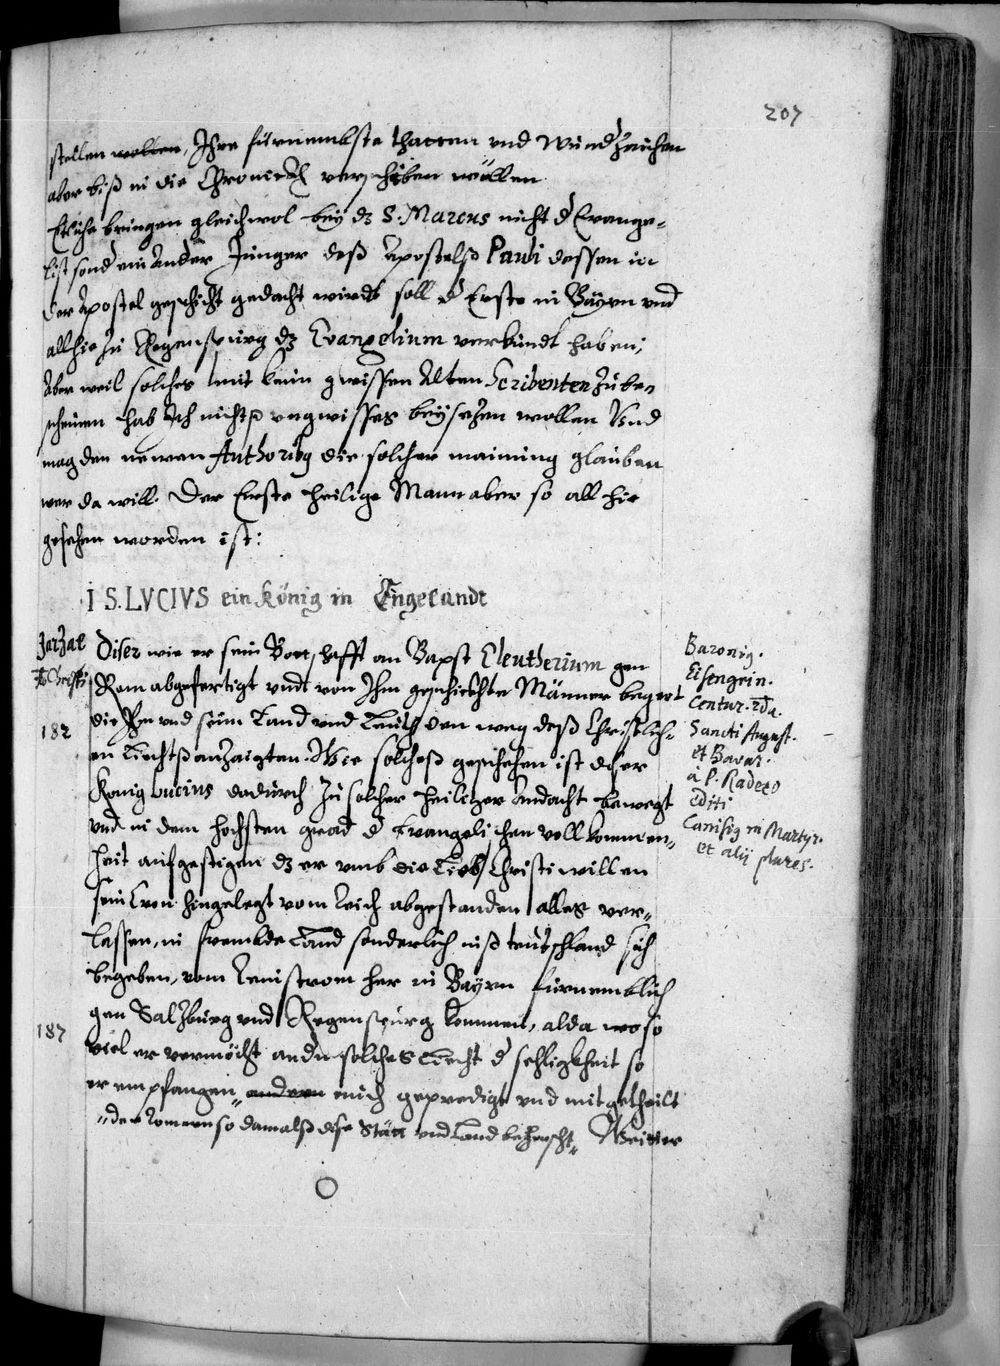 207
stellen wollen, Ihre fürnembste thatten vnd Wundzeichen
aber biß in die Chronickh verschiben wöllen
Etliche bringen gleichwol bey dz S. Marcus nicht d Evange-
list sond ein Ander Jünger deß Apostelß Pauli dessen in
der Apostel geschicht gedacht wirdt soll d Erste in Bayrn vnd
allhie zu Regenspurg dz Evangelium verkündt haben;
Aber weil solches mit kein gwissen Alten Scribenten zube-
scheinen hab Ich nichtß vngwisses beysezen wollen Vnd
mag den newen Authoribg die solcher mainung glauben
wer da will. Der Erste heilige Mann aber so all hie
gesehen worden ist:
i S. LVCIVS ein König in Engelandt
Jarzal
Christi
182
Diser wie er sein Bottschafft an Bapst Eleutherium gen
Rom abgefertigt vndt von Ihm geschickhte Männer begert
die Ihn vnd seim Land vnd Leuth den weg deß Christlich-
en Liechtß anzaigten. Wie solcheß geschehen ist diser
König Lucius dadurch zu solcher heiliger Andacht bewegt
vnd in dem höchsten grad d Evangelischen vollkommen-
heit aufgestigen dz er vmb die Lieb Christi willen
sein Cron hingelegt vom Reich abgestanden alles ver-
lassen, in frembde Land sonderlich inß teutschland sich
begeben, vom Reinstrom her in Bayrn fürnemblich
gen Salzburg vnd Regenspurg kommen, alda wo so
187
viel er vermöcht andn solches Liecht d sehligkheit so
er empfangen, andern auch gepredigt vnd mitgetheilt
"den Romern so damalß dise Stätt vnd Land beherscht" Weitter
Baronig.
Eisengrin.
Centur. 2da.
Sancti August.
et Bavar.
à P. Radero
editi
Canisig in Martyr.
et alij plures.